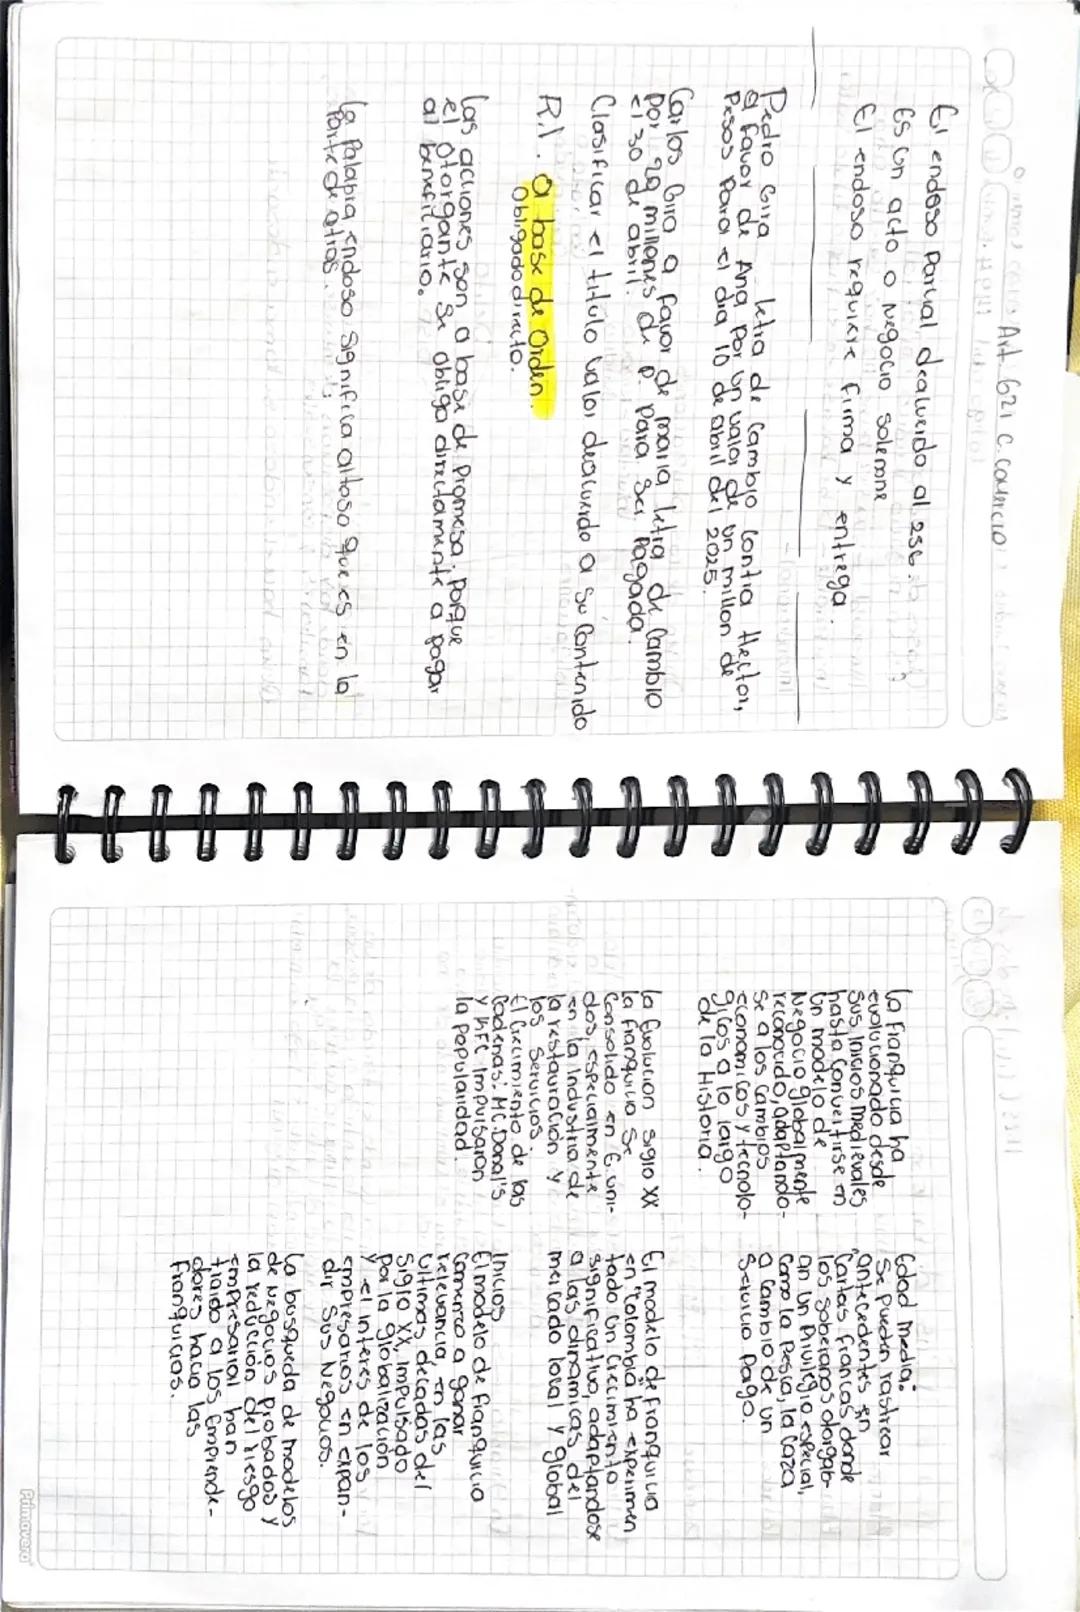 Art. 621 C. comercio
El endoso Parcial deacuerdo al 256.
Es un acto o negocio solemne
El endoso requiere firma y entrega.
Pedro Gira letra de cambio contra Hector,
a favor de Ana por un valor de un millon de
Pesos para el dia 10 de abril del 2025.
Carlos Gira a favor de maria letra de Cambio
por 20 millones de P. Para ser Pagada
el 30 de abril.
Clasificar el titulo valor deacuerdo a su Contenido
R.1. a base de Orden.
Obligado directo.
Las acciones son a base de Promesa, Porque
el otorgante se obliga directamente a pagar
al beneficiario.
la Palabra Endoso Significa al toso que es en la
Parte de atras.
la Franquicia ha
evolucionado desde
sus Inicios medievales
hasta convertirse en
Un modelo de
Negocio globalmente
reconocido, adaptando-
se a los Cambios
economicos y tecnolo-
gicos a lo largo
de la Historia.
la Evolucion siglo XX
la franquicia Se
Consolido en E. uni-
dos, especialmente
en la Industria de
la restauración y
los Servicios.
El Crecimiento de las
Cadenas: MC. Donal's
y KFC Impulsaron
la popularidad.
Edad media:
Se pueden rastrear
antecedentes en
"Cartas francas, donde
los soberanos otorgab-
an un Privilegio especial,
Como la Pesca, la Caza
a Cambio de un
Servicio Pago.
El modelo de Franquicia
en "Colombia" ha experimen
tado Un Crecimiento
significativo, adaptandose
a las dinamicas del
mercado local y global
Inicios
El modelo de franquicia
Comenzo a ganar
relevancia, en las
Ultimas decadas del
Siglo XX, Impulsado
Por la globalización
y el interes de los
empresarios en expan-
dir Sus Negocios.
la busqueda de modelos
de Negocios Probados y
la reducción del riesgo
Empresarial han
traido a los Emprende-
dores hacia las
franquicias.
Primavera